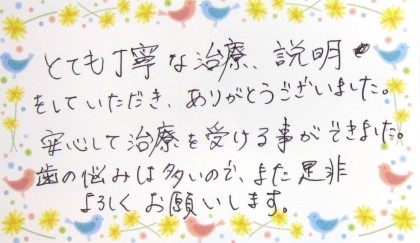 とても丁寧な治療、説明
をしていただき、ありがとうございました。
安心して治療を受ける事ができました。
歯の悩みは多いので、また是非
よろしくお願いします。